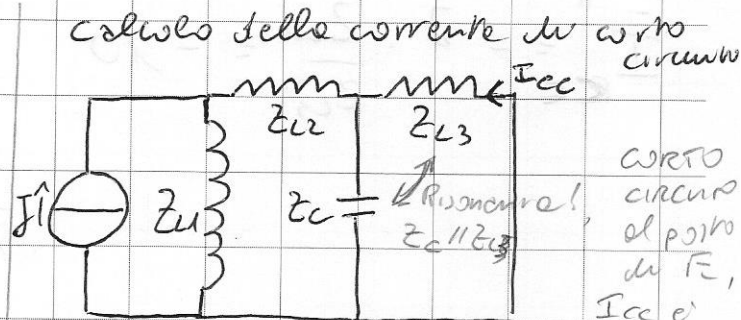 calcolo della corrente di corto
circuito
Icc
ZL2
ZL3
J↑
ZL1
Zc
Risonanza!
Zc//ZL3
CORTO
CIRCUITO
al posto
di E,
Icc è